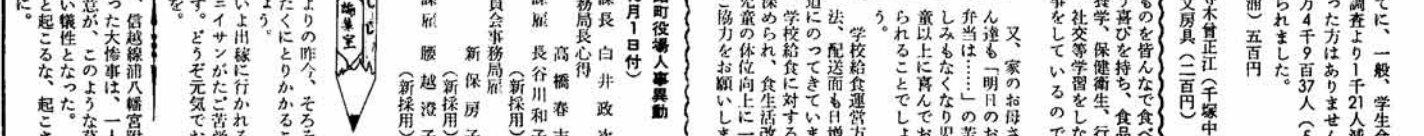 てに、一般、学生合
調査より1千21人減
った方はありませ
万4千9百37人（5
られました。
浦）五百円
寺木曽正江（千塚中
文房具（二百円）
ものを皆んなで食べ
う喜びを持ち、食品
養学、保健衛生、行
社交等学習をしな
事をしているので
又、家のお母さ
ん達も「明日のお
弁当は……」の苦
しみもなくなり児
童以上に喜んでお
られることでしょ
う。
学校給食運営方
法、配送面も日増
道にのってきていま
学校給食に対する
深められ、食生活改
児童の体位向上に一
ご協力をお願いしま
町役場人事異動
月1日付）
課長 白井政次
務局長心得
高橋春吉
課雇 長谷川和子
（新採用）
員会事務局雇
新保房子
（新採用）
課雇 腰越澄子
（新採用）
編集室
よりの昨今、そろそ
たくにとりかかるこ
ょう。
いよ出稼に行かれる
ニイサンがたご苦労
す。どうぞ元気でお
を。
信越線浦八幡宮附
った大惨事は、一人
意が、このような莫
い犠性となった。
と起こるな、起こさ
に。